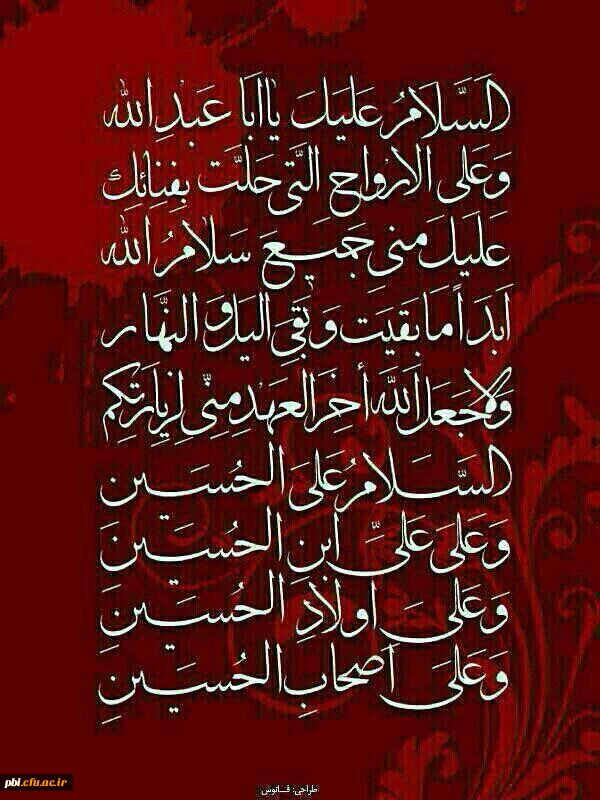 اَلسَّلامُ عَلَیكَ یا اَبا عَبدِ الله
وَعَلی الاَرواحِ الَّتی حَلَّت بِفِنائِكَ
عَلَیكَ مِنی جَمیعَ سَلامُ الله
اَبَداً ما بَقیَت وَ بَقیَ الیلُ وَ النَّهار
وَلا جَعَلَ اللهُ أخِرَ العَهدِ مِنّی لِزِیارَتِكُم
السَّلامُ عَلیَ الحُسَینِ
وَعَلیَ عَلیِّ ابنِ الحُسَینِ
وَعَلیَ اَولادِ الحُسَینِ
وَعَلیَ اَصحابِ الحُسَینِ
طراحی: فانوس
pbi.cfu.ac.ir